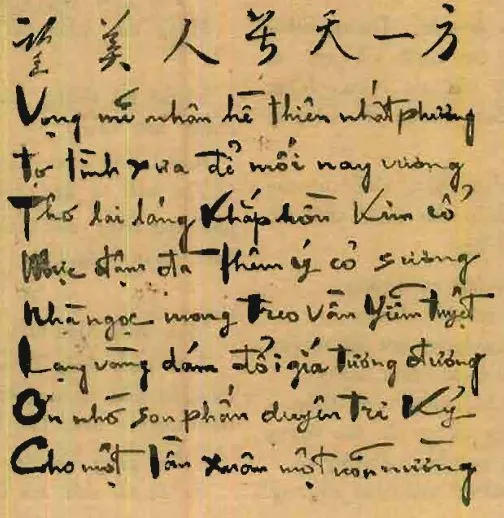 望美人兮天一方
Vọng mĩ nhân hề thiên nhất phương
Tơ tình xưa để mối nay vương
Thơ lai láng khắp hồn kim cổ
Mực đậm đà thêm ý cỏ sương
Nhà ngọc mong treo vần diễm tuyệt
Lạng vàng dám đổi giá tương đương
Ơn nhớ son phấn duyên tri kỷ
Cho một lần xuân một